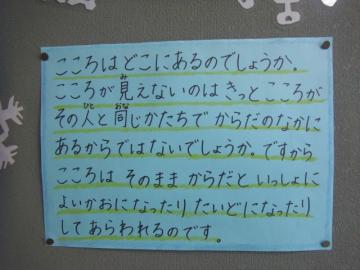 こころはどこにあるのでしょうか。
こころが見えないのは きっと こころが
その人と同じかたちで からだのなかに
あるからではないでしょうか。ですから
こころは そのまま からだと いっしょに
よいかおになったり たいどになったり
して あらわれるのです。